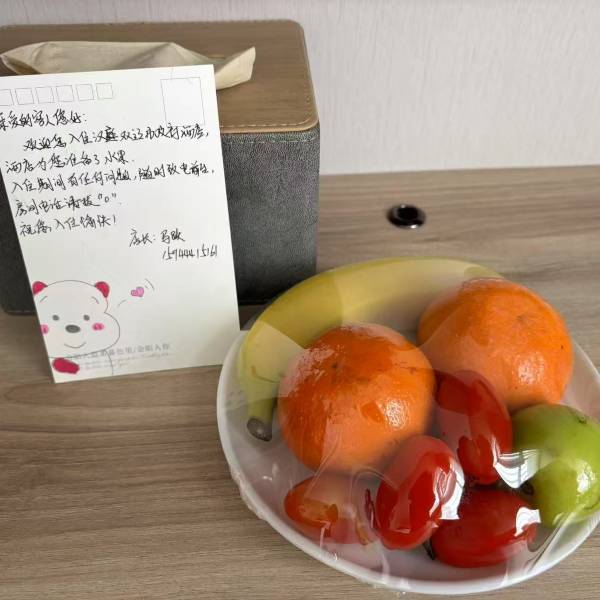 亲爱的客人您好:
欢迎您入住汉庭双辽市政府酒店,
酒店为您准备了水果.
入住期间有任何问题,随时致电前台,
房间电话请拨"0".
祝您入住愉快!
店长:马
15944415161